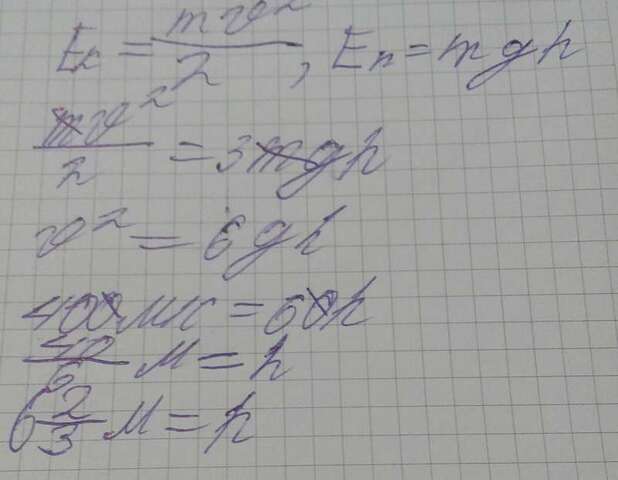 Eк = mv²/2, Eп = mgh
mv²/2 = 3mgh
v² = 6gh
400 м/с = 60h
40/6 м = h
6 2/3 м = h